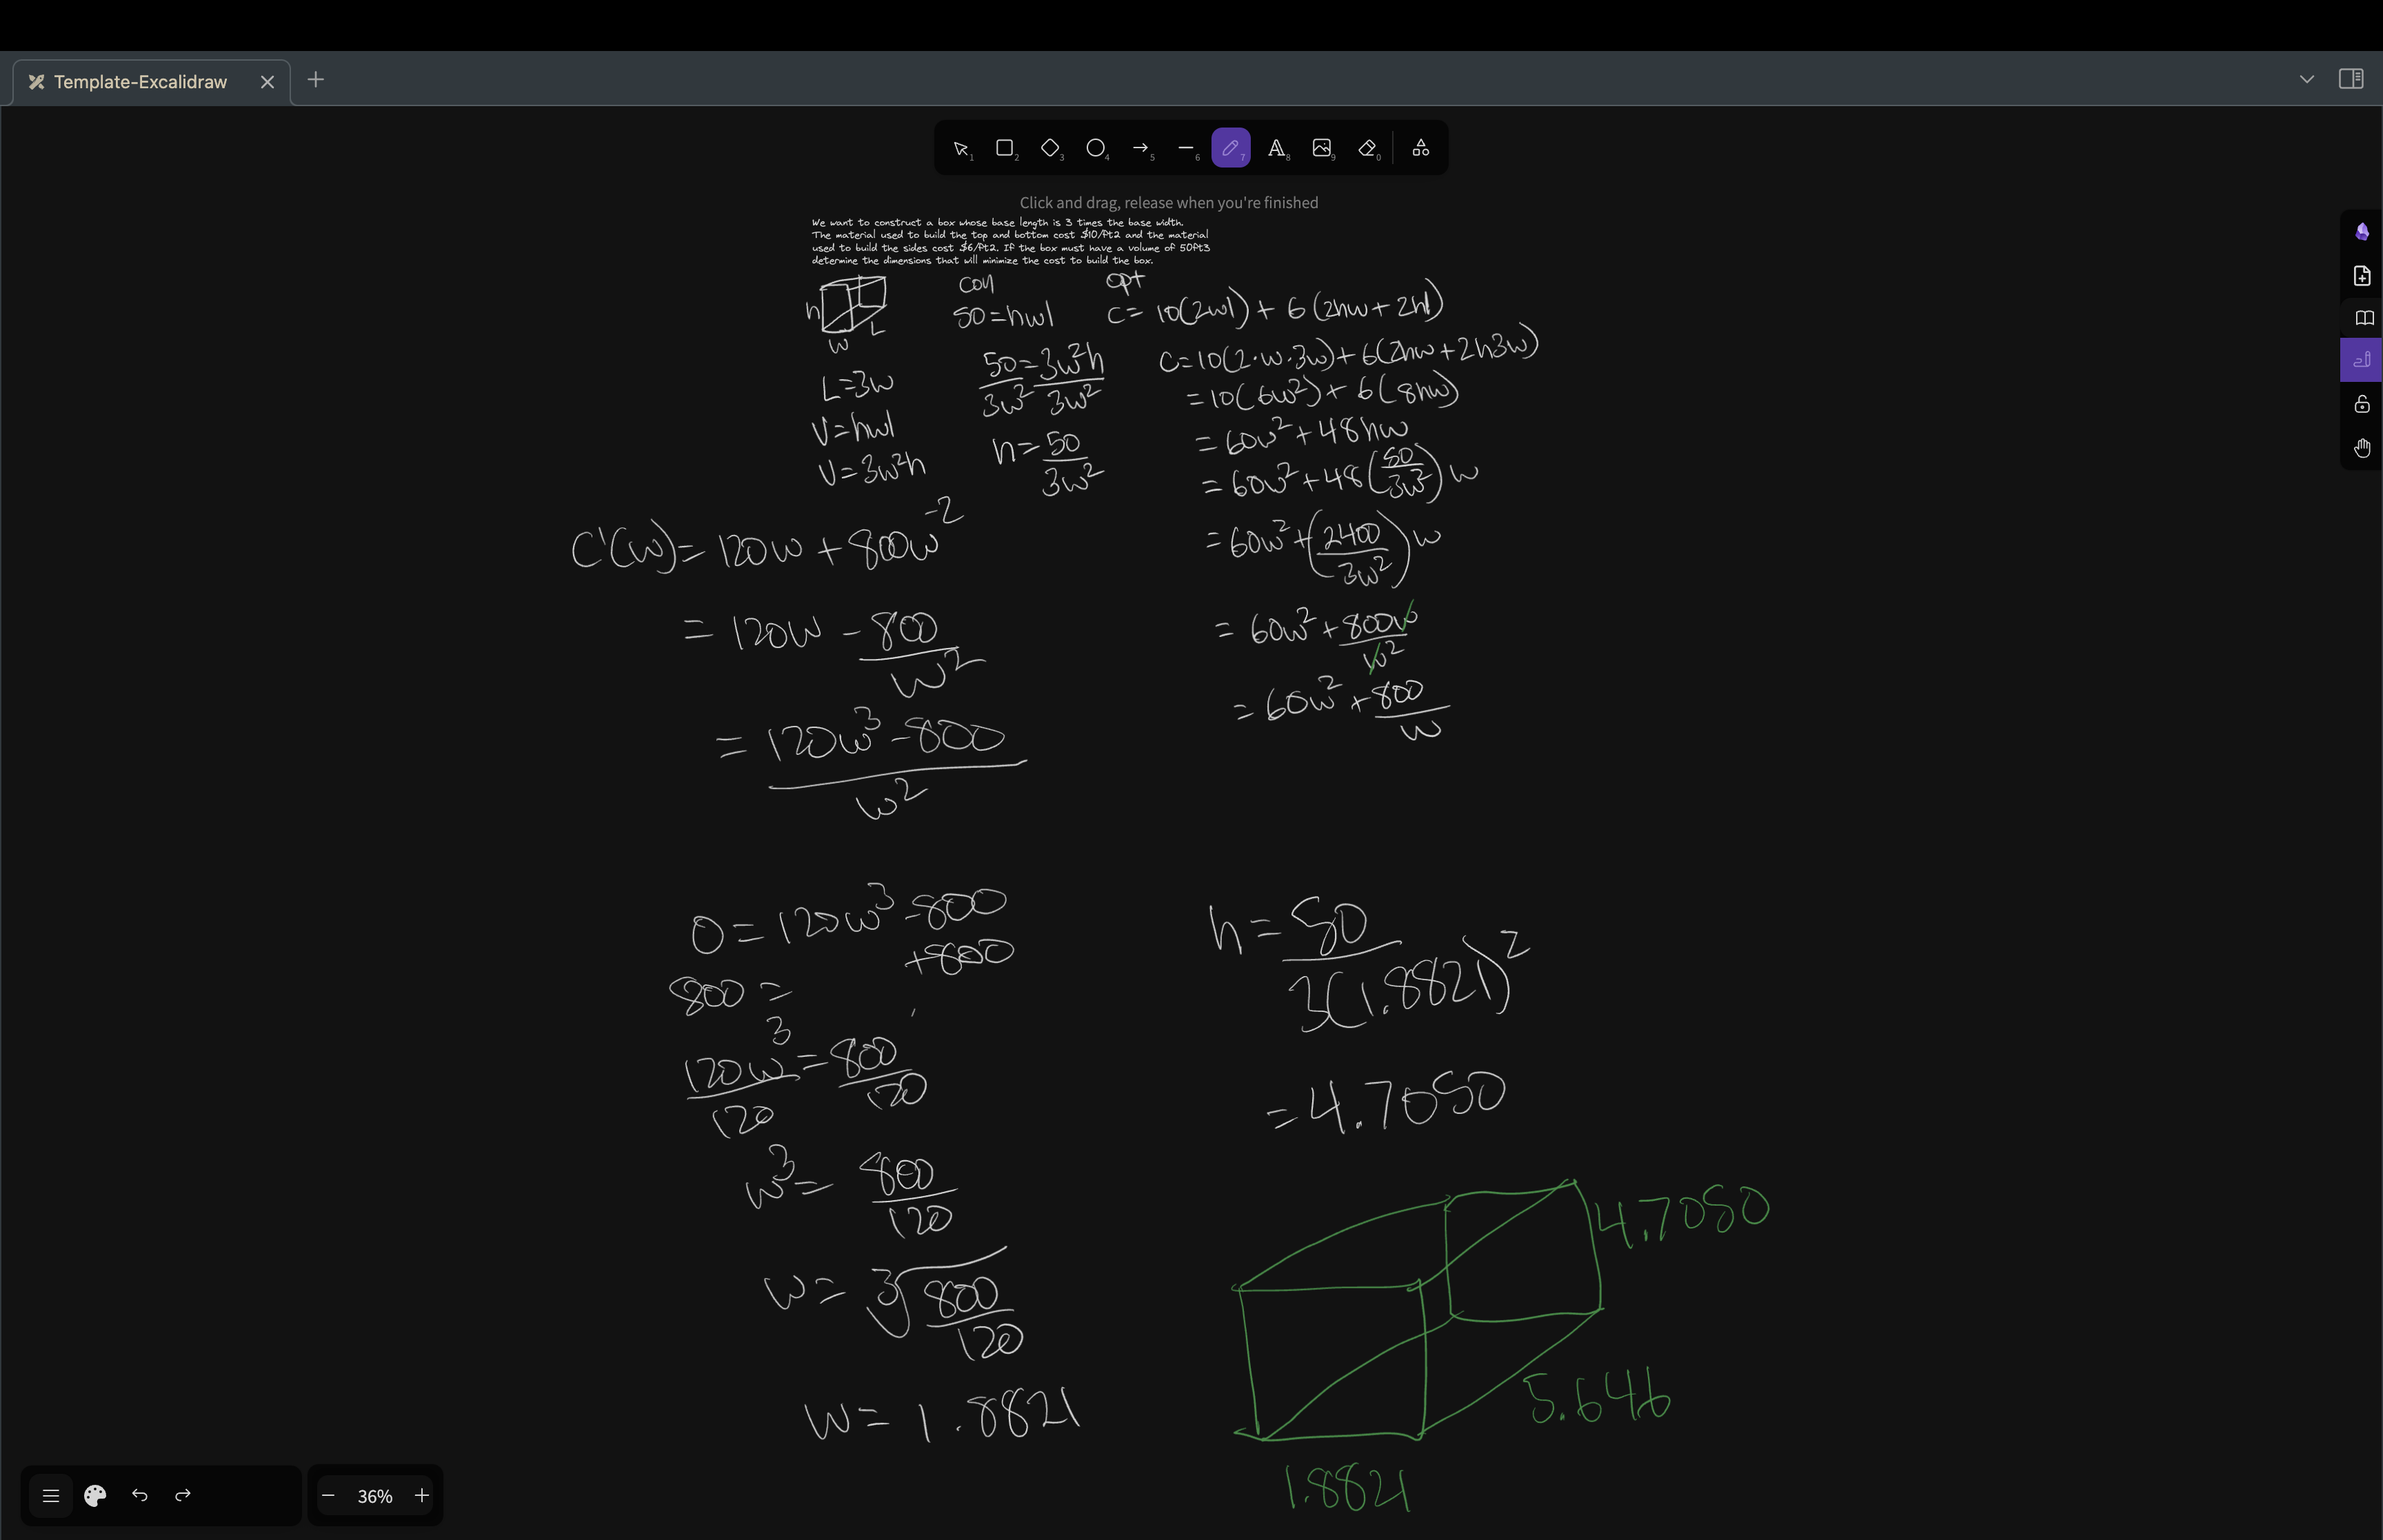 Template-Excalidraw
1 2 3 4 5 6 7 8 9 0
Click and drag, release when you're finished
We want to construct a box whose base length is 3 times the base width.
The material used to build the top and bottom cost $10/ft2 and the material
used to build the sides cost $6/ft2. If the box must have a volume of 50ft3
determine the dimensions that will minimize the cost to build the box.
h
L
w
L=3w
V=hwl
V=3w²h
con
50=hwl
50/3w² = 3w²h/3w²
h=50/3w²
opt
C= 10(2wl) + 6(2hw+2hl)
C=10(2·w·3w)+6(2hw+2h3w)
=10(6w²)+6(8hw)
=60w²+48hw
=60w²+48(50/3w²)w
=60w²+(2400/3w²)w
=60w²+800w/w²
=60w²+800/w
C'(w)=120w+800w⁻²
=120w-800/w²
=120w³-800/w²
0=120w³-800
+800
800=
120w³/120=800/120
w³=800/120
w=∛800/120
w=1.8821
h=50/3(1.8821)²
=4.7050
4.7050
5.646
1.8821
36%